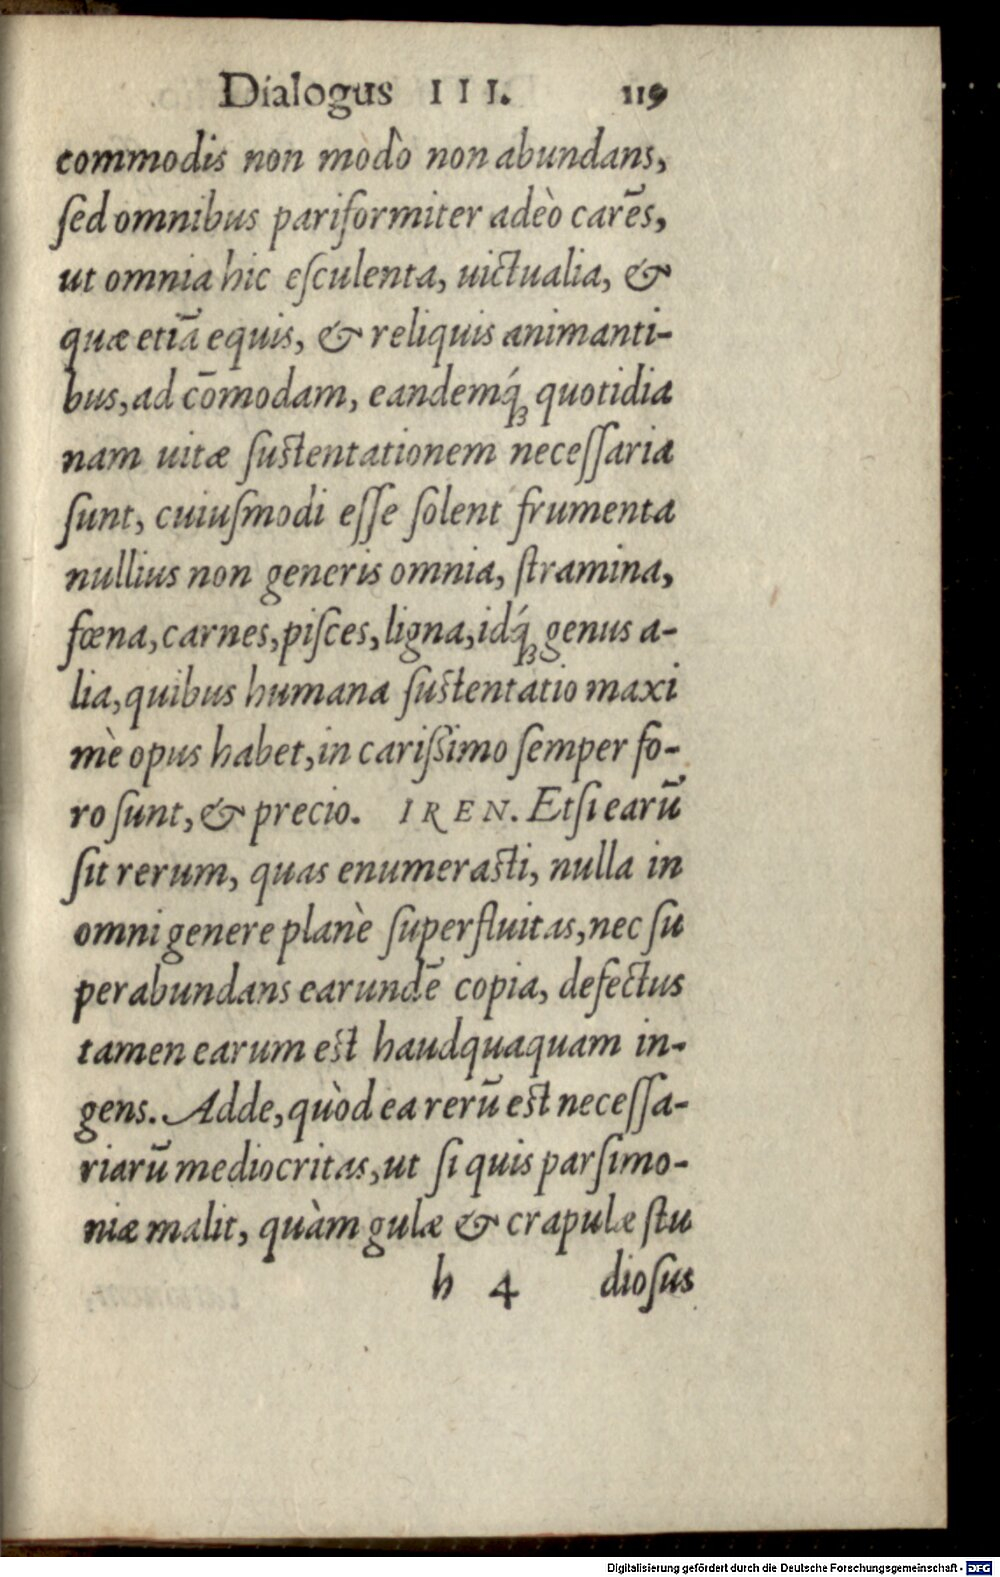 Dialogus III. 119
commodis non modò non abundans,
ſed omnibus pariformiter adeò carēs,
ut omnia hic eſculenta, uictualia, &
quæ etiā equis, & reliquis animanti-
bus, ad cōmodam, eandemq́ꝫ quotidia
nam uitæ ſustentationem neceſſaria
ſunt, cuiuſmodi eſſe ſolent frumenta
nullius non generis omnia, ſtramina,
fœna, carnes, piſces, ligna, idq́ꝫ genus a-
lia, quibus humana ſustentatio maxi
mè opus habet, in cariſsimo ſemper fo-
ro ſunt, & precio. IREN. Etſi earū
ſit rerum, quas enumerasti, nulla in
omni genere planè ſuperfluitas, nec ſu
perabundans earundē copia, defectus
tamen earum est haudquaquam in-
gens. Adde, quòd ea rerū est neceſſa-
riarū mediocritas, ut ſi quis parſimo-
niæ malit, quàm gulæ & crapulæ ſtu
h 4 dioſus
Digitalisierung gefördert durch die Deutsche Forschungsgemeinschaft - DFG